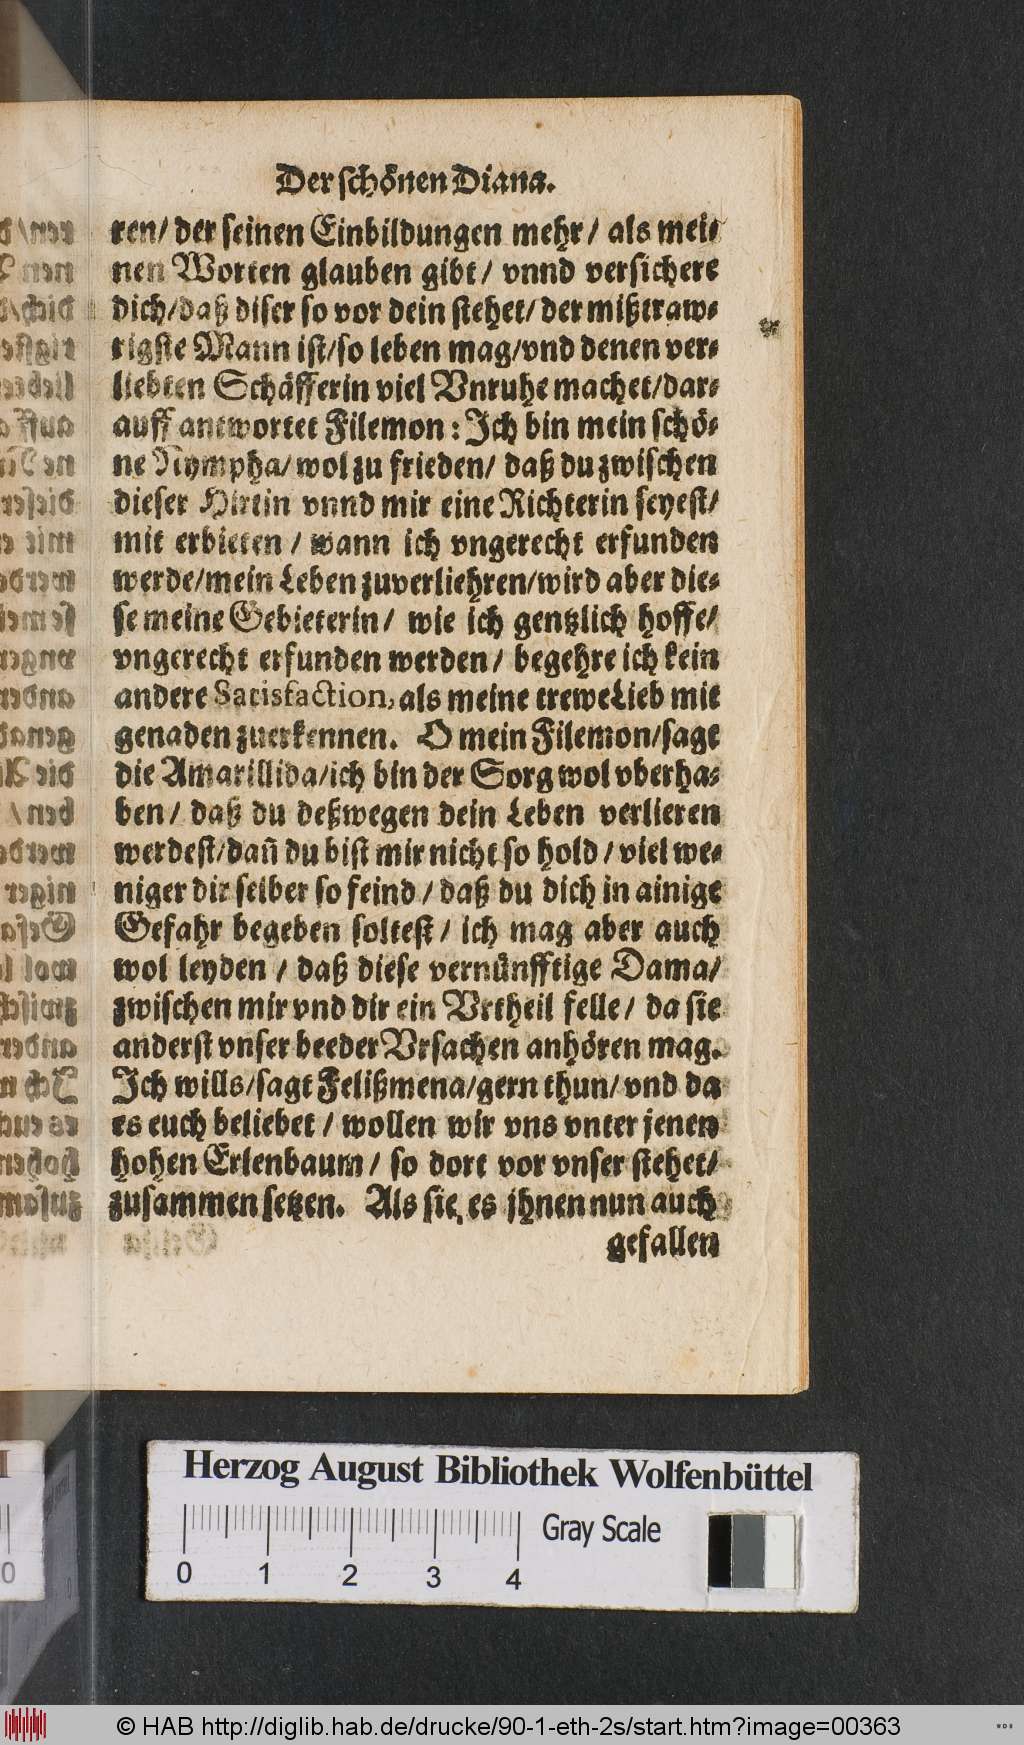 Der schönen Diana.
ren/ der seinen Einbildungen mehr/ als mei-
nen Worten glauben gibt/ vnnd versichere
dich/daß diser so vor dein stehet/ der mißtraw-
rigste Mann ist/so leben mag/vnd denen ver-
liebten Schäfferin viel Vnruhe machet/dar-
auff antwortet Filemon: Ich bin mein schö-
ne Nympha/ wol zu frieden/ daß du zwischen
dieser Hirtin vnnd mir eine Richterin seyest/
mit erbieten / wann ich vngerecht erfunden
werde/mein Leben zuverliehren/wird aber die-
se meine Gebieterin/ wie ich gentzlich hoffe/
vngerecht erfunden werden/ begehre ich kein
andere Satisfaction, als meine trewe Lieb mit
genaden zuerkennen. O mein Filemon/sagt
die Amarillida/ich bin der Sorg wol vberha-
ben/ daß du deßwegen dein Leben verlieren
werdest/dañ du bist mir nicht so hold / viel we-
niger dir selber so feind / daß du dich in ainige
Gefahr begeben soltest/ ich mag aber auch
wol leyden / daß diese vernünfftige Dama/
zwischen mir vnd dir ein Vrtheil felle/ da sie
anderst vnser beeder Vrsachen anhören mag.
Ich wills/sagt Felißmena/gern thun/ vnd da
es euch beliebet / wollen wir vns vnter jenen
hohen Erlenbaum/ so dort vor vnser stehet/
zusammen setzen. Als sie es jhnen nun auch
gefallen
Herzog August Bibliothek Wolfenbüttel
Gray Scale
0 1 2 3 4
© HAB http://diglib.hab.de/drucke/90-1-eth-2s/start.htm?image=00363